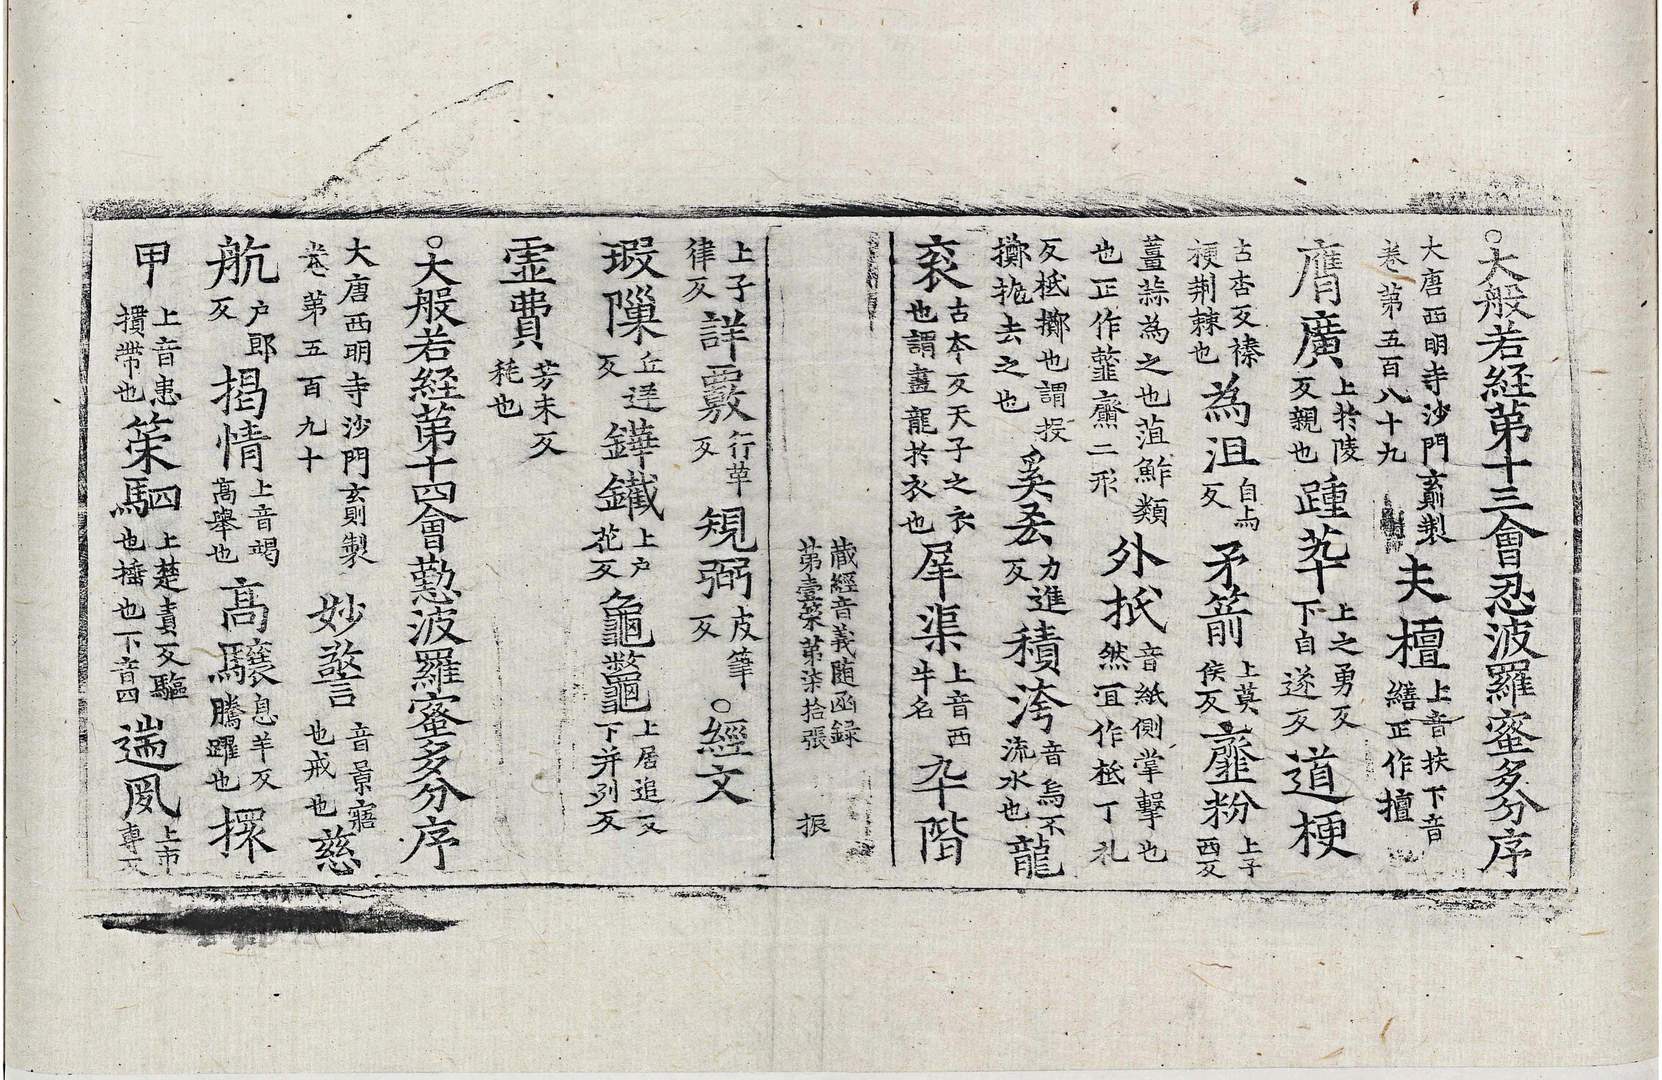 ○大般若経第十三會忍波羅蜜多分序
大唐西明寺沙門玄則製卷第五百八十九 夫檀上音扶下音繕正作擅
膺廣上扵陵反親也踵苹上之勇反下自遂反道梗
古杏反榛梗荆棘也為沮自与反矛箭上莫侯反虀粉上子西反
薑蒜為之也菹鮓類也正作虀齏二形外扺音紙側掌擊也然宜作柢丁礼
反柢擲也謂投擲扡去之也奚吝力進反積洿音烏不流水也龍
衮古夲反天子之衣也謂畫龍扵衣也犀渠上音西牛名卆階
藏經音義随函録第壹筞第柒拾張 振
上子律反詳覈行革反規弼皮筆反○經文
瑕隟丘逆反鏵鐵上户花反龜鼈上居追反下并列反
霊費芳未反耗也
○大般若経第十四會懃波羅蜜多分序
大唐西明寺沙門玄則製卷第五百九十 妙警音景寤也戒也慈
航户郎反揭情上音竭高舉也高驤息羊反騰躍也擐
甲上音患摜帶也策駟上楚責反驅也捶也下音四遄夙上市專反